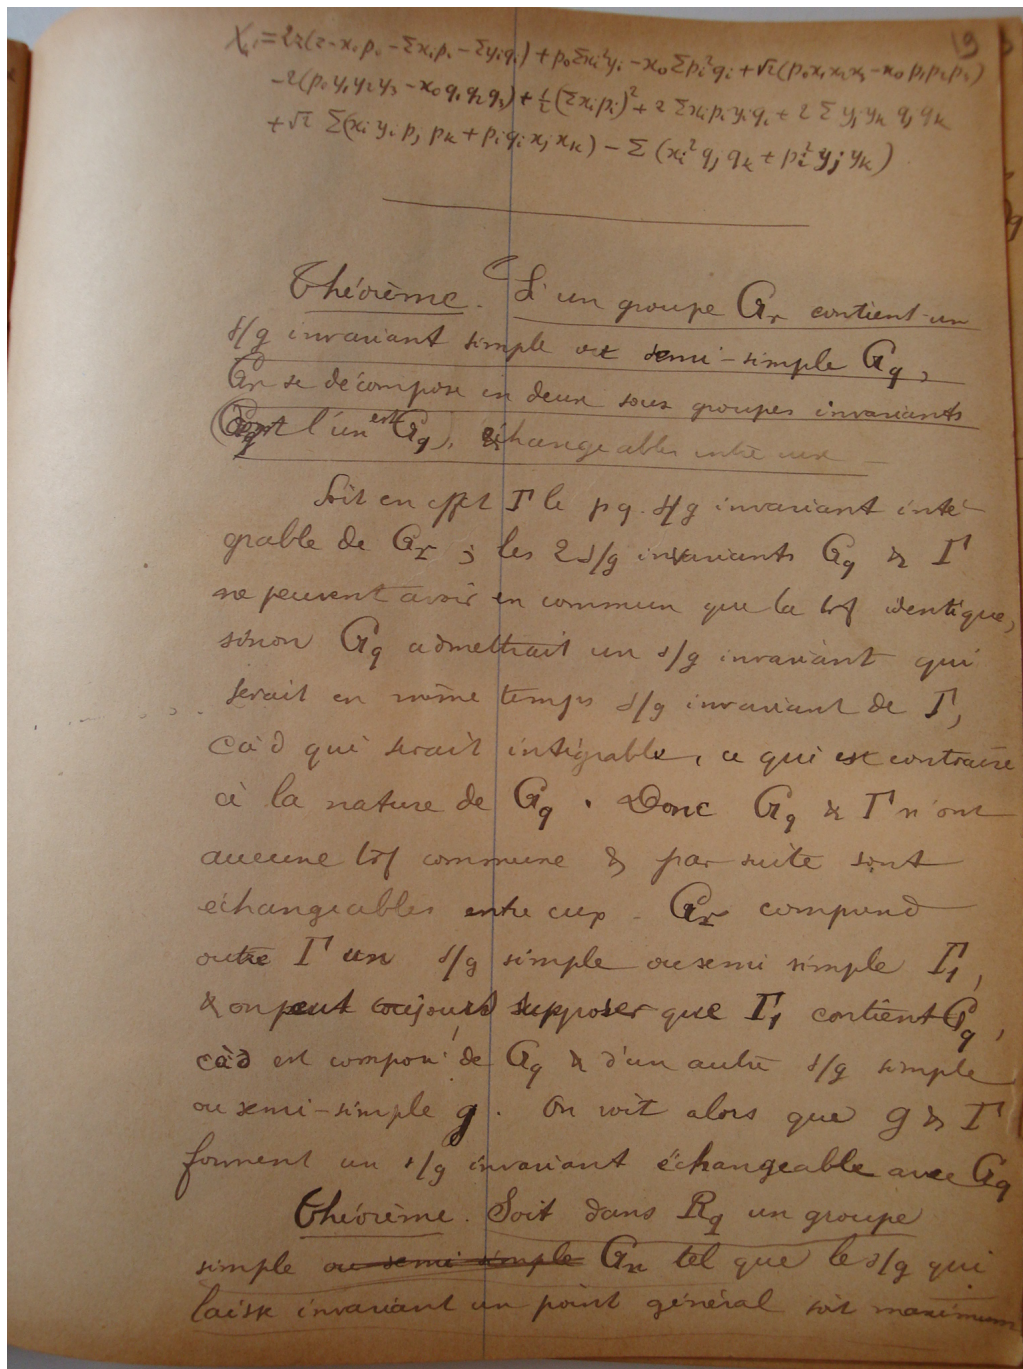 19
X₁ = 2z(z - x₀p₀ - Σxᵢpᵢ - Σyᵢqᵢ) + p₀Σxᵢ²yᵢ - x₀Σpᵢ²qᵢ + √2(p₀x₁x₂x₃ - x₀p₁p₂p₃)
-2(p₀y₁y₂y₃ - x₀q₁q₂q₃) + ½(Σxᵢpᵢ)² + 2Σxᵢpᵢyᵢqᵢ + 2Σyⱼyₖqⱼqₖ
+√2 Σ(xᵢyᵢpⱼpₖ + pᵢqᵢxⱼxₖ) - Σ(xᵢ²qⱼqₖ + pᵢ²yⱼyₖ)
Théorème. Si un groupe Gᵣ contient un
s/g invariant simple ou semi-simple G_q,
Gᵣ se décompose en deux sous groupes invariants
(dont l'un est G_q), échangeables entre eux
Soit en effet Γ le pq. s/g invariant inté-
grable de Gᵣ ; les 2 s/g invariants G_q & Γ
ne peuvent avoir en commun que la trf identique,
sinon G_q admettrait un s/g invariant qui
serait en même temps s/g invariant de Γ,
càd qui serait intégrable, ce qui est contraire
à la nature de G_q. Donc G_q & Γ n'ont
aucune trf commune & par suite sont
échangeables entre eux. Gᵣ comprend
outre Γ un s/g simple ou semi simple Γ₁,
& on peut toujours supposer que Γ₁ contient G_q,
càd est composé de G_q & d'un autre s/g simple
ou semi-simple g. On voit alors que g & Γ
forment un s/g invariant échangeable avec G_q
Théorème. Soit dans R_q un groupe
simple ou semi simple Gₙ tel que le s/g qui
laisse invariant un point général soit maximum